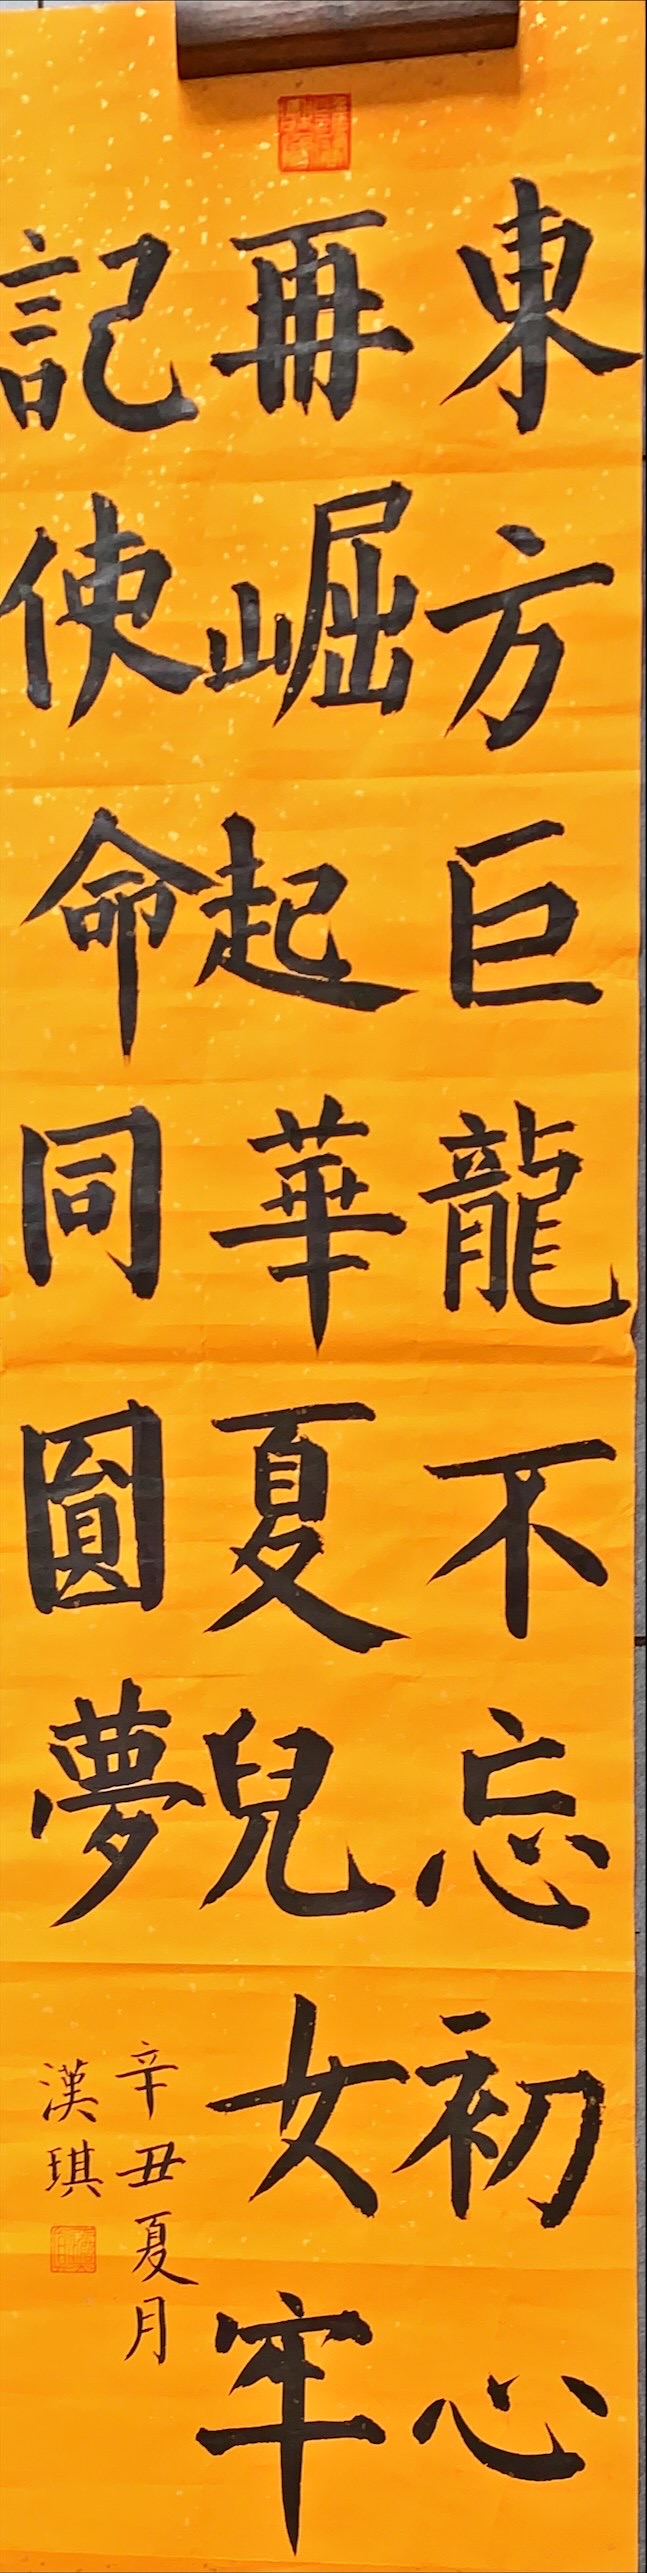 東方巨龍不忘初心
再崛起華夏兒女牢
記使命同圓夢
辛丑夏月
漢琪